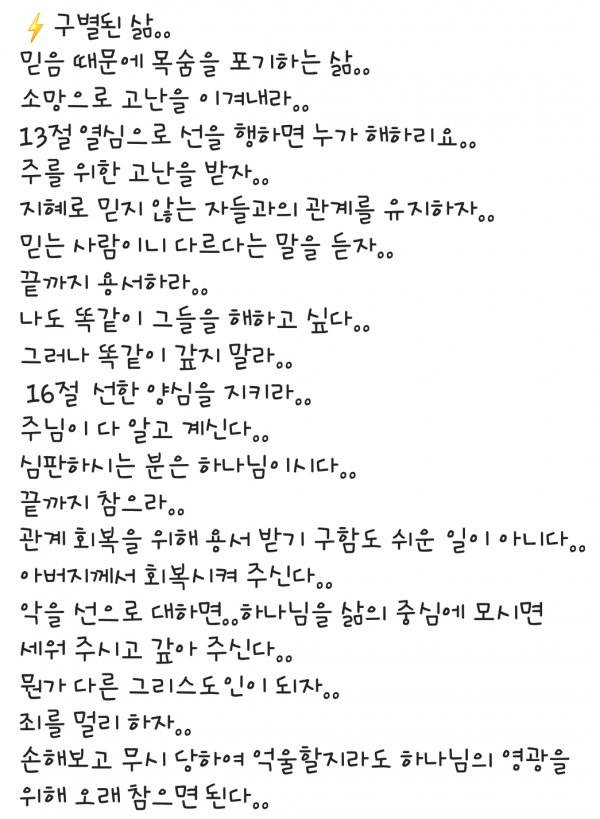 ⚡ 구별된 삶..
믿음 때문에 목숨을 포기하는 삶..
소망으로 고난을 이겨내라..
13절 열심으로 선을 행하면 누가 해하리요..
주를 위한 고난을 받자..
지혜로 믿지 않는 자들과의 관계를 유지하자..
믿는 사람이니 다르다는 말을 듣자..
끝까지 용서하라..
나도 똑같이 그들을 해하고 싶다..
그러나 똑같이 갚지 말라..
16절 선한 양심을 지키라..
주님이 다 알고 계신다..
심판하시는 분은 하나님이시다..
끝까지 참으라..
관계 회복을 위해 용서 받기 구함도 쉬운 일이 아니다..
아버지께서 회복시켜 주신다..
악을 선으로 대하면..하나님을 삶의 중심에 모시면
세워 주시고 갚아 주신다..
뭔가 다른 그리스도인이 되자..
죄를 멀리 하자..
손해보고 무시 당하여 억울할지라도 하나님의 영광을
위해 오래 참으면 된다..